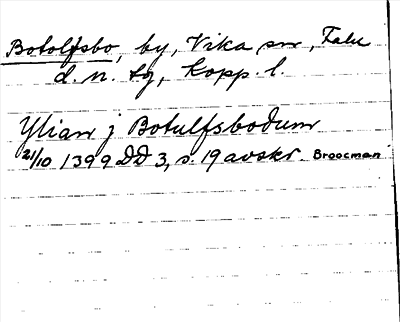 Botolfsbo, by, Vika sn, Falu
d. n. tg, Kopp. l.
Ylian j Botulfsbodum
21/10 1399 DD 3, s. 19 avskr. Broocman